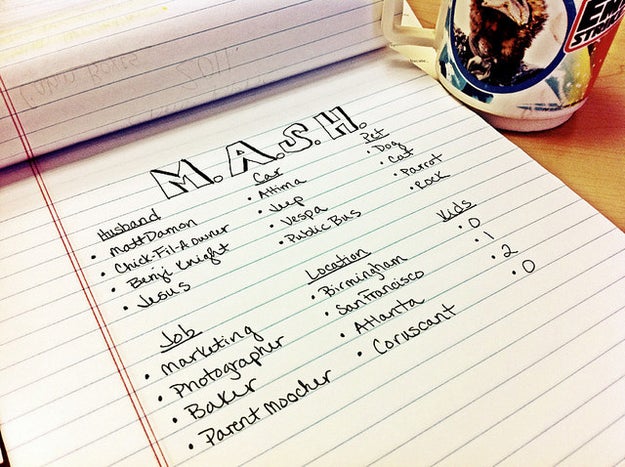 M.A.S.H.
Husband
• Matt Damon
• Chick-Fil-A owner
• Benji Knight
• Jesus
Car
• Altima
• Jeep
• Vespa
• Public Bus
Pet
• Dog
• Cat
• Parrot
• Rock
Job
• marketing
• Photographer
• Baker
• Parent moocher
Location
• Birmingham
• San Francisco
• Atlanta
• Coruscant
Kids
• 0
• 1
• 2
• 0